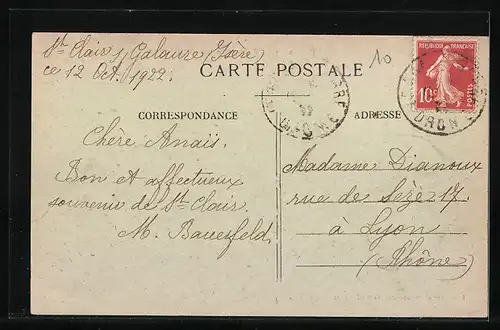 St Clair s/ Galaure (Isère)
ce 12 Oct. 1922.
10
CARTE POSTALE
REPUBLIQUE FRANÇAISE
10c
POSTES
CORRESPONDANCE
ADRESSE
Chère Anaïs.
Bon et affectueux
souvenir de St Clair.
M. Bauesfeld
Madame Dianoux
rue de Sèze 17.
à Lyon
(Rhône)